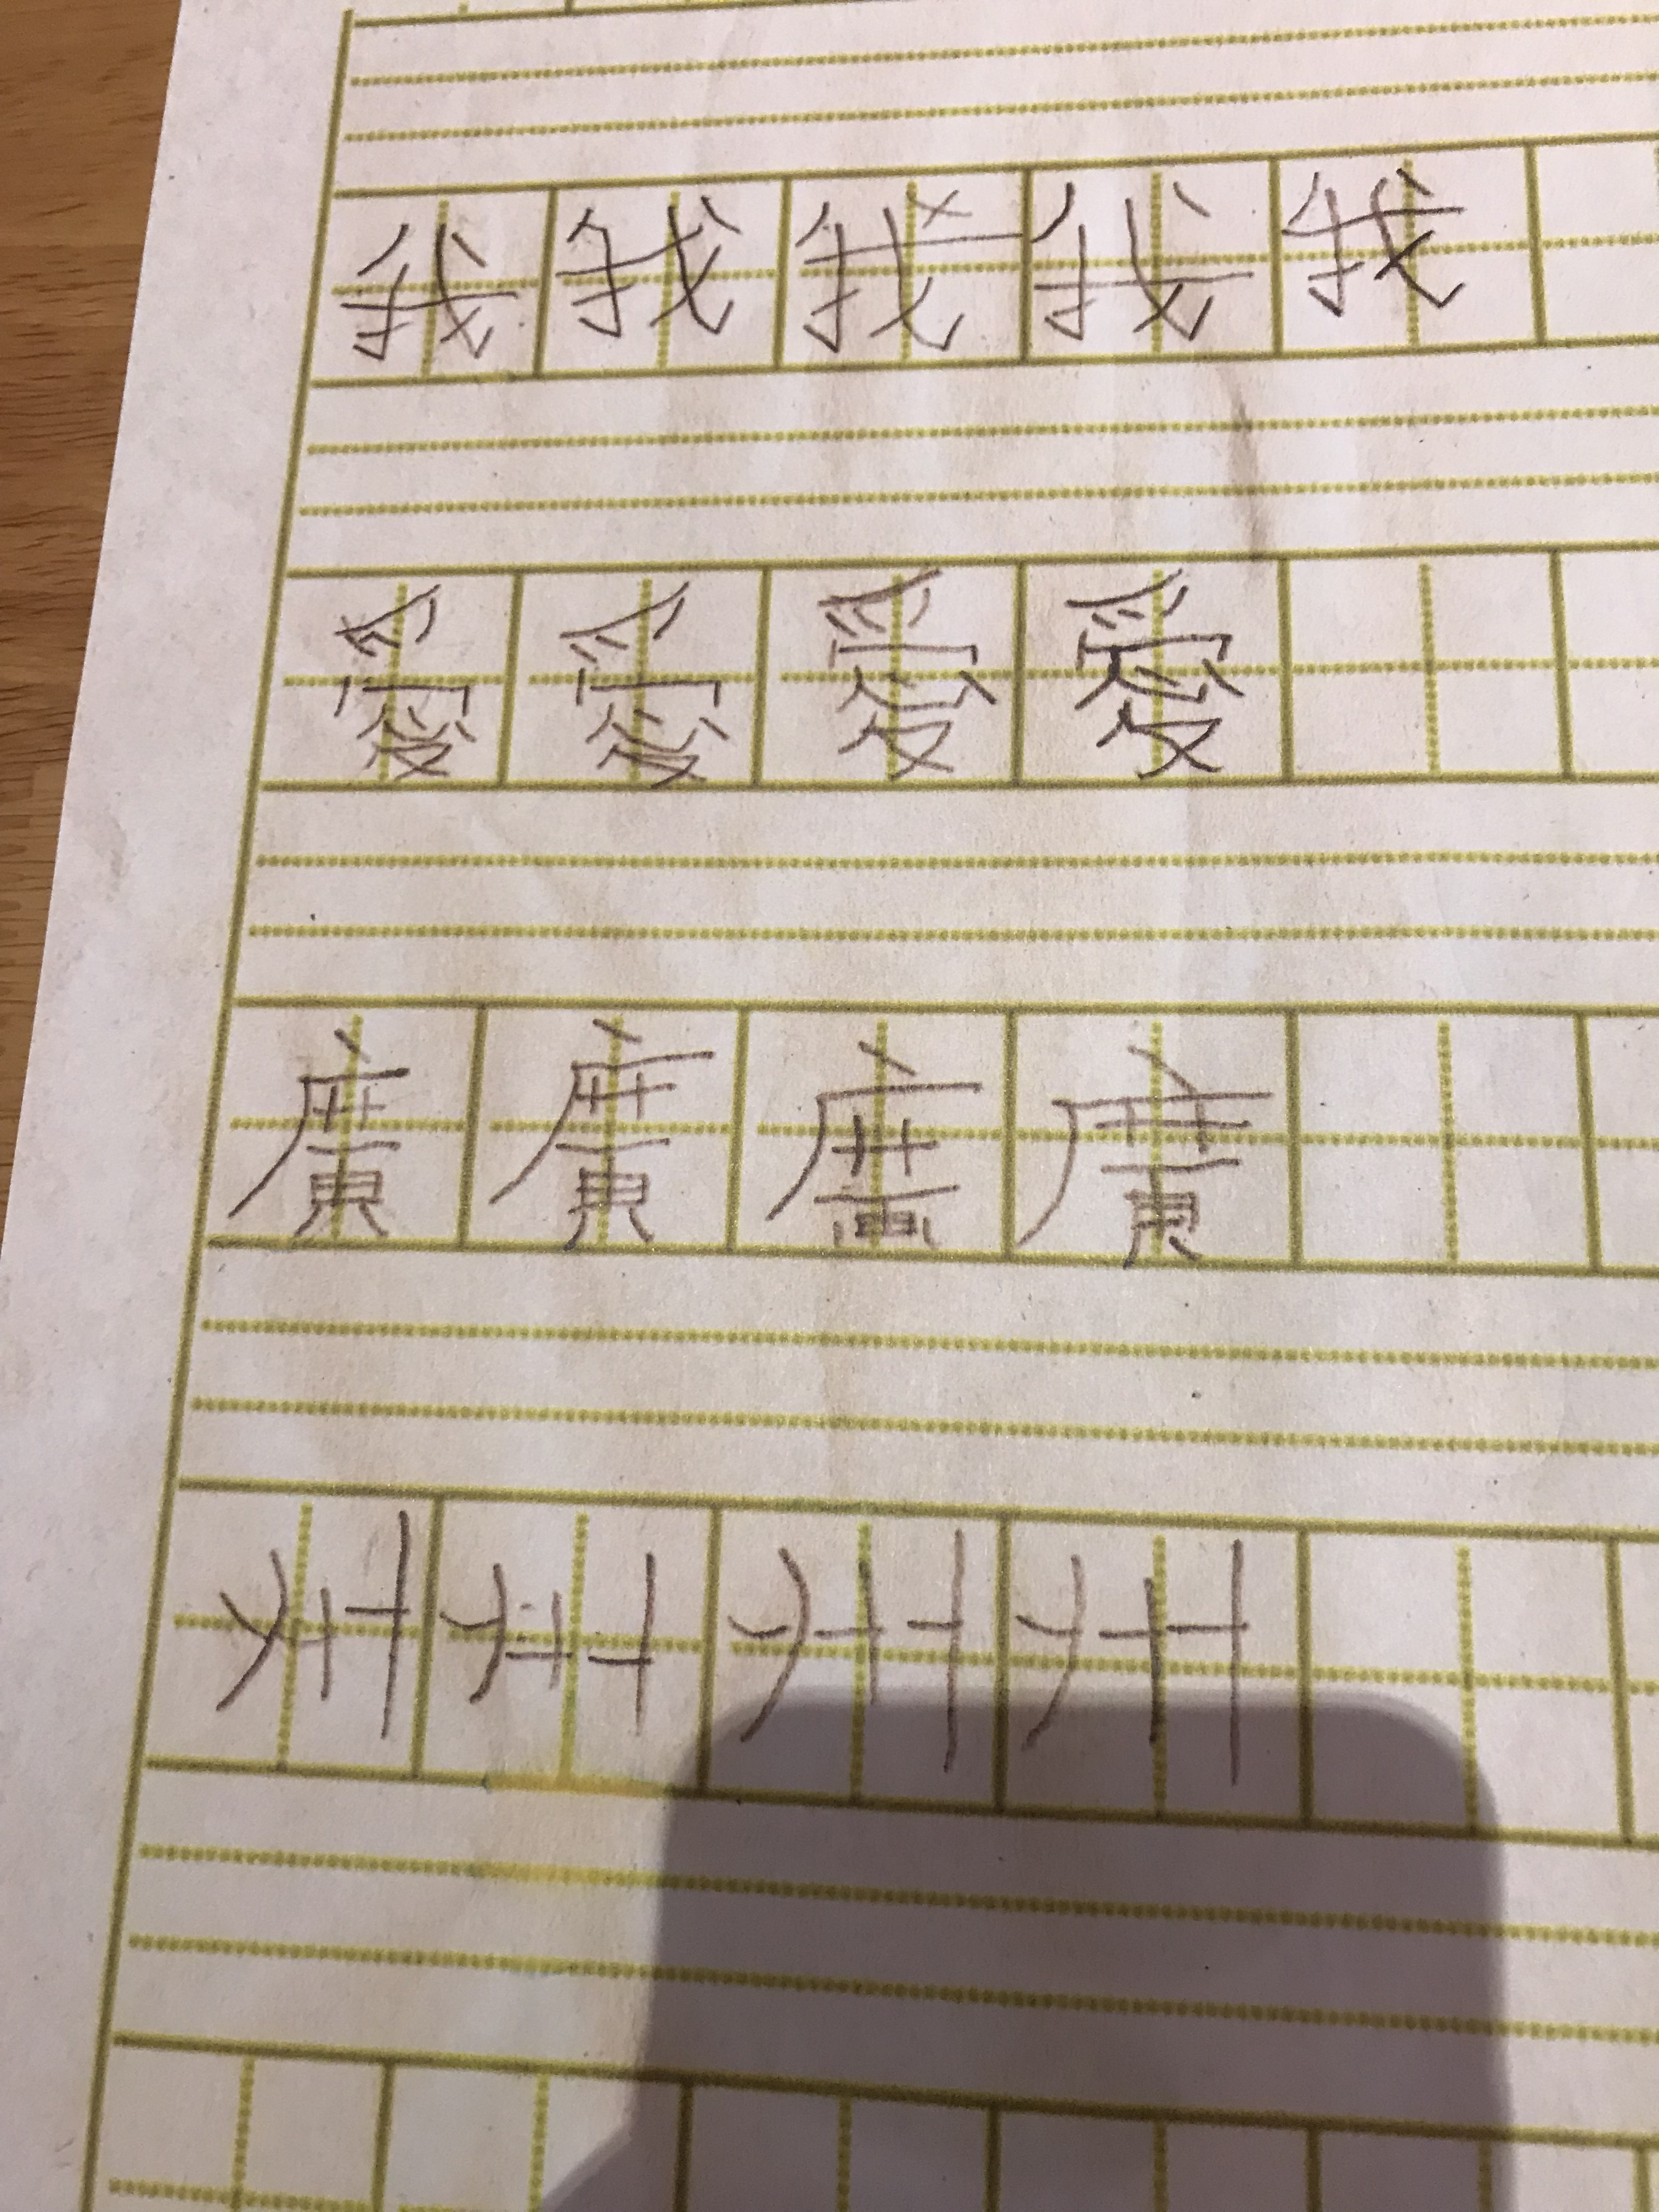 我我我我我
愛愛愛愛
廣廣廣廣
州州州州